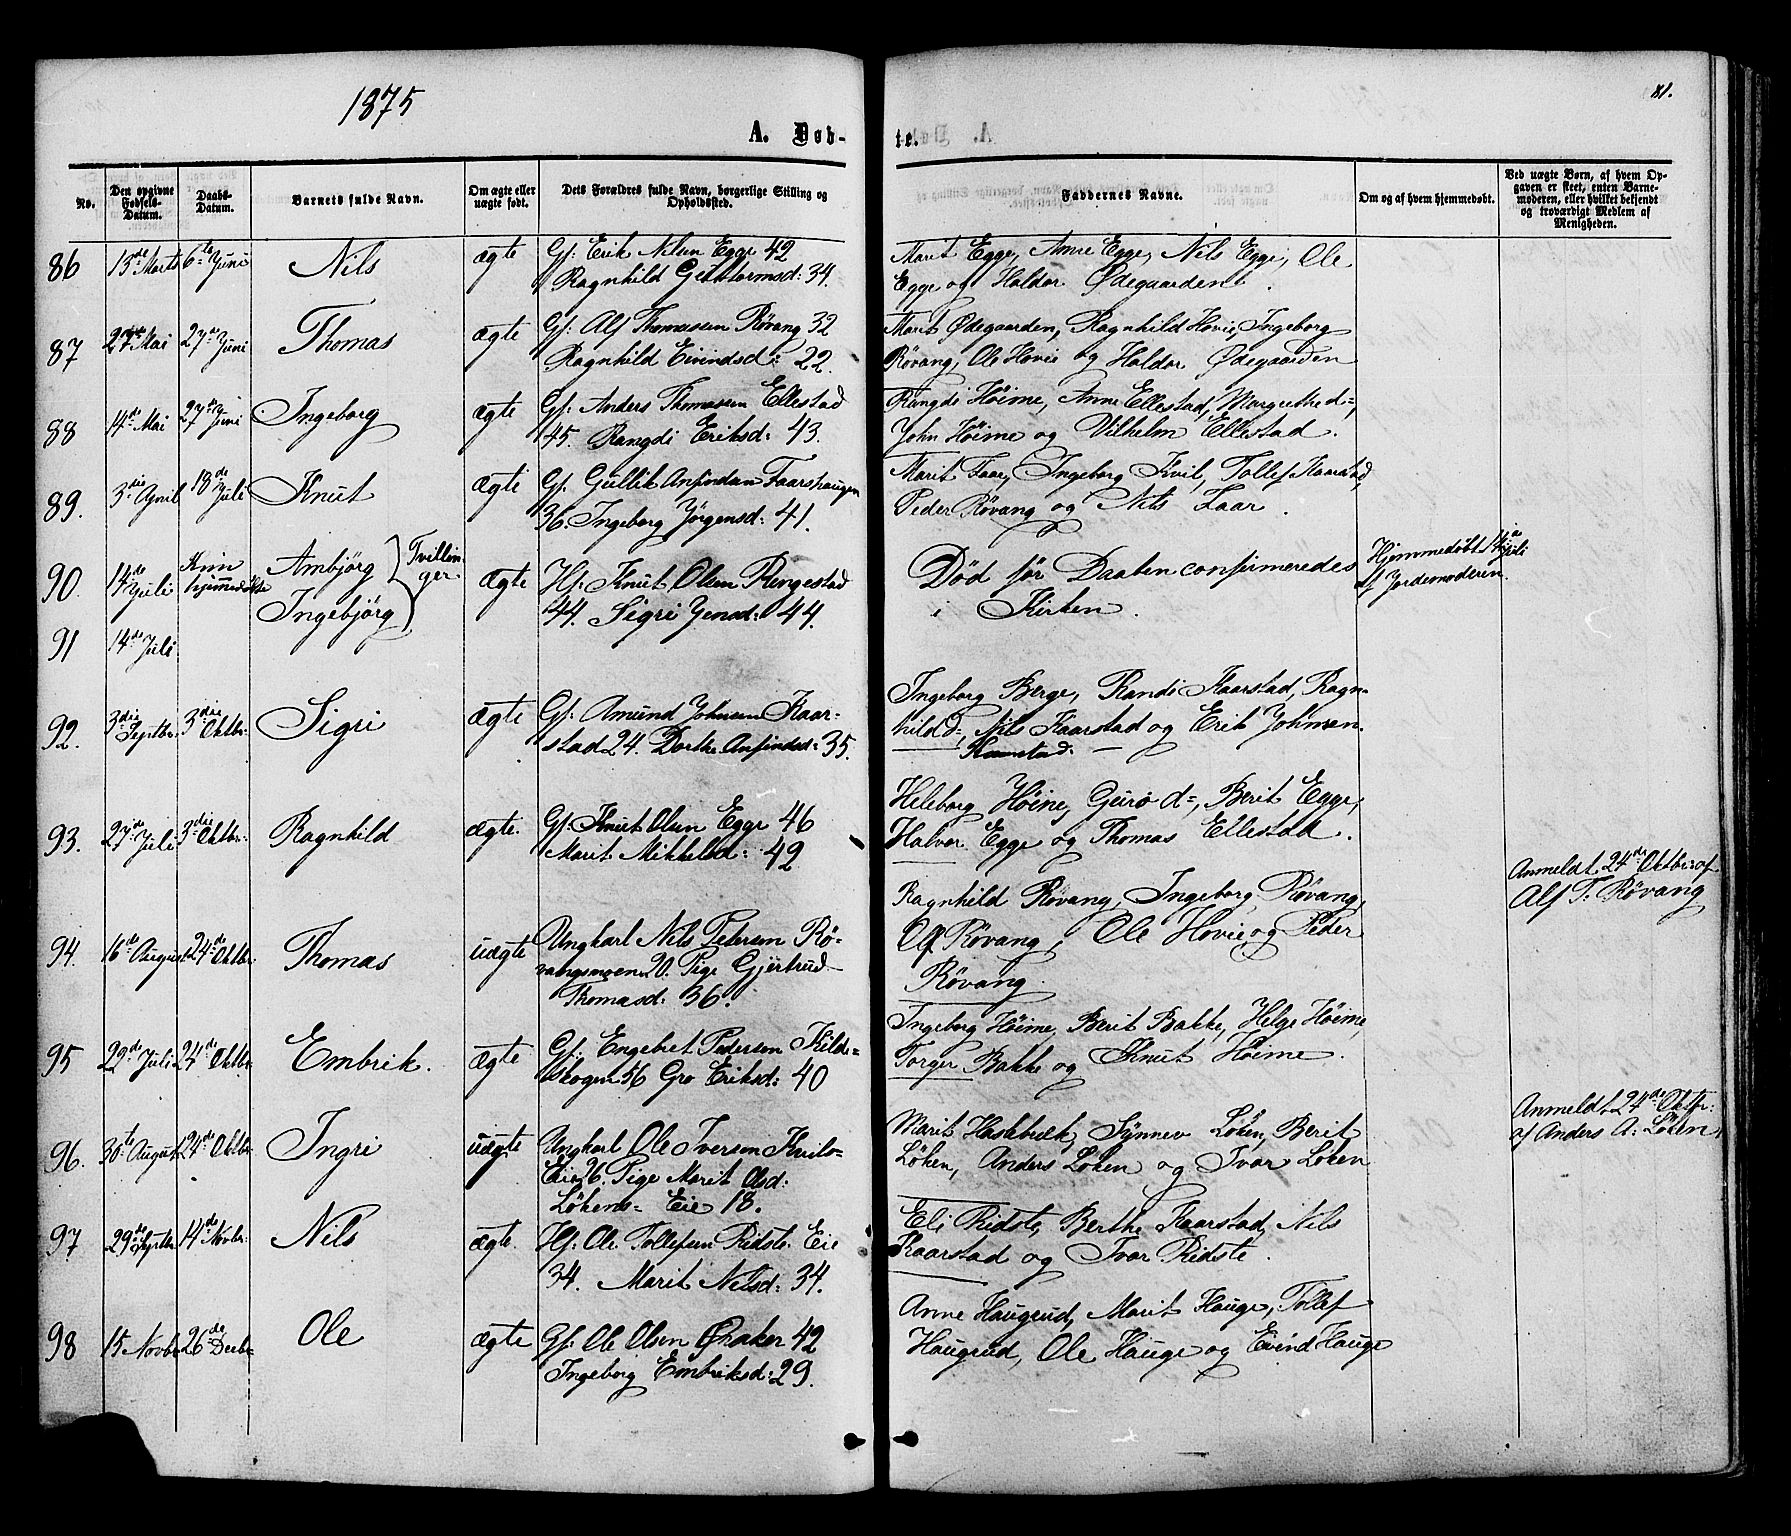 1875
81.
A. Døb-
te.
No.
Den opgivne Fødsels-Datum.
Daabs-Datum.
Barnets fulde Navn.
Om ægte eller uægte født.
Dets Forældres fulde Navn, borgerlige Stilling og Opholdssted.
Faddernes Navne.
Om og af hvem hjemmedøbt.
Ved uægte Børn, af hvem Opgaven er skeet, enten Barnemoderen, eller hvilket bekjendt og troværdigt Medlem af Menigheden.
86 13de Marts 6te Juni Nils ægte Gf: Erik Nilsen Egge 42
Ragnhild Guttormsd: 34.
Marit Egge, Anne Egge, Nils Egge, Ole
Egge og Haldor Ødegaarden.
87 27de Mai 27de Juni Thomas ægte Gf: Alf Thomassen Røvang 32
Ragnhild Eivindsd: 22.
Marit Ødegaarden, Ragnhild Hovie, Ingeborg
Røvang, Ole Hovie og Haldor Ødegaarden
88 14de Mai 27de Juni Ingeborg ægte Gf: Anders Thomassen Ellestad
45. Rangdi Eriksd: 43.
Rangdi Høime, Anne Ellestad, Margrethe d=,
John Høime og Vilhelm Ellestad.
89. 3die April 18de Juli Knut ægte Gf. Gullik Anfindsen Faarshaugen
36. Ingeborg Jørgensd: 41.
Marit Faar, Ingeborg Kvil, Tollef Kaarstad,
Peder Røvang og Nils Faar.
90. 14de Juli Kun hjemmedøbte Ambjørg Tvillinger ægte Hf: Knut Olsen Rengestad
Ingebjørg 44. Sigri Jensd: 44.
Død før Daaben confirmeredes
i Kirken.
Hjemmedøbt 14de Juli
af Jordemoderen.
91 14de Juli
92. 3die Septbr: 3die Oktbr: Sigri ægte Gf: Amund Johnsen Kaar-
stad 24. Dorthe Anfindsd: 35.
Ingeborg Berge, Randi Kaarstad, Ragn-
hild d=, Nils Kaarstad og Erik Johnsen
Kaarstad.
93. 27de Juli 3die Oktbr: Ragnhild ægte. Gf: Knut Olsen Egge 46
Marit Mikkelsd: 42
Heleborg Høime, Guro d=, Berit Egge,
Halvor Egge og Thomas Ellestad.
94. 16de August 24de Oktbr: Thomas uægte Ungkarl Nils Petersen Rø-
vangsmoen 20. Pige Gjertrud
Thomasd: 36.
Ragnhild Røvang, Ingeborg Røvang,
Alf Røvang, Ole Hovie og Peder
Røvang.
Anmeldt 24de Oktbr: af
Alf T: Røvang
95 29de Juli 24de Oktbr Embrik. ægte Gf: Engebret Pederson Kilde-
skogen 56 Gro Eriksd: 40
Ingeborg Høime, Berit Bakke, Helge Høime,
Torger Bakke og Knut Høime.
96. 30te August 24de Oktbr Ingri uægte Ungkarl Ole Iversen Kvils-
Eie 26. Pige Marit Olsd:
Løkens- Eie 18.
Marit Haskebæk, Synnev Løken, Berit
Løken, Anders Løken og Ivar Løken
Anmeldt 24de Oktbr:
af Anders A: Løken
97 29de Septbr 14de Novbr: Nils ægte. Hf: Ole Tollefsen Ridste Eie
34. Marit Nilsd: 34.
Eli Ridste, Berthe Kaarstad, Nils
Kaarstad og Ivar Ridste.
98 15 Novbr 26de Decbr Ole ægte Gf: Ole Olsen Øraker 42
Ingeborg Embriksd: 29.
Anne Haugrud, Marit Hauge, Tollef
Haugrud, Ole Hauge og Eivind Hauge